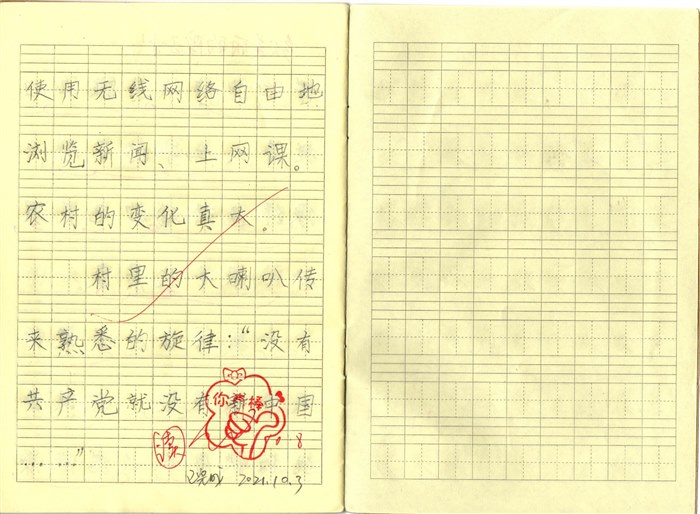 使用无线网络自由地
浏览新闻、上网课。
农村的变化真大。
村里的大喇叭传
来熟悉的旋律:“没有
共产党就没有新中国
……”
你真棒
2021.10.3